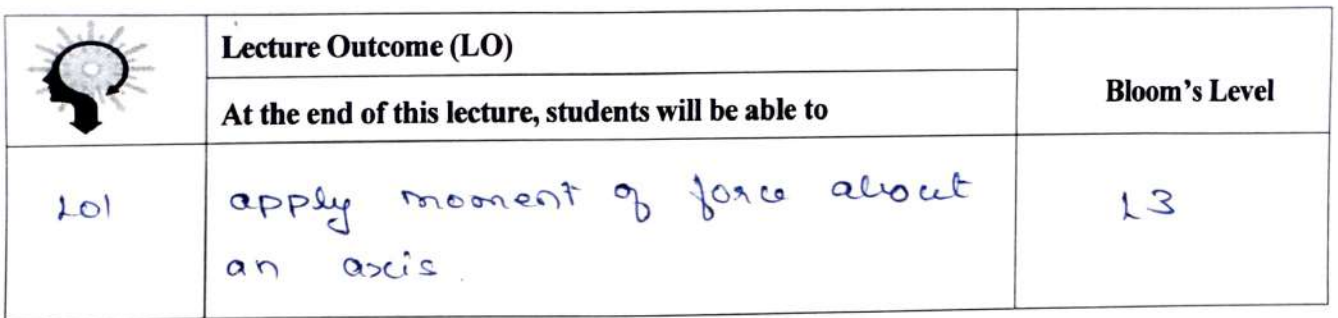 Lecture Outcome (LO)
At the end of this lecture, students will be able to
Bloom's Level
LO1
apply moment of force about
an axis.
L3